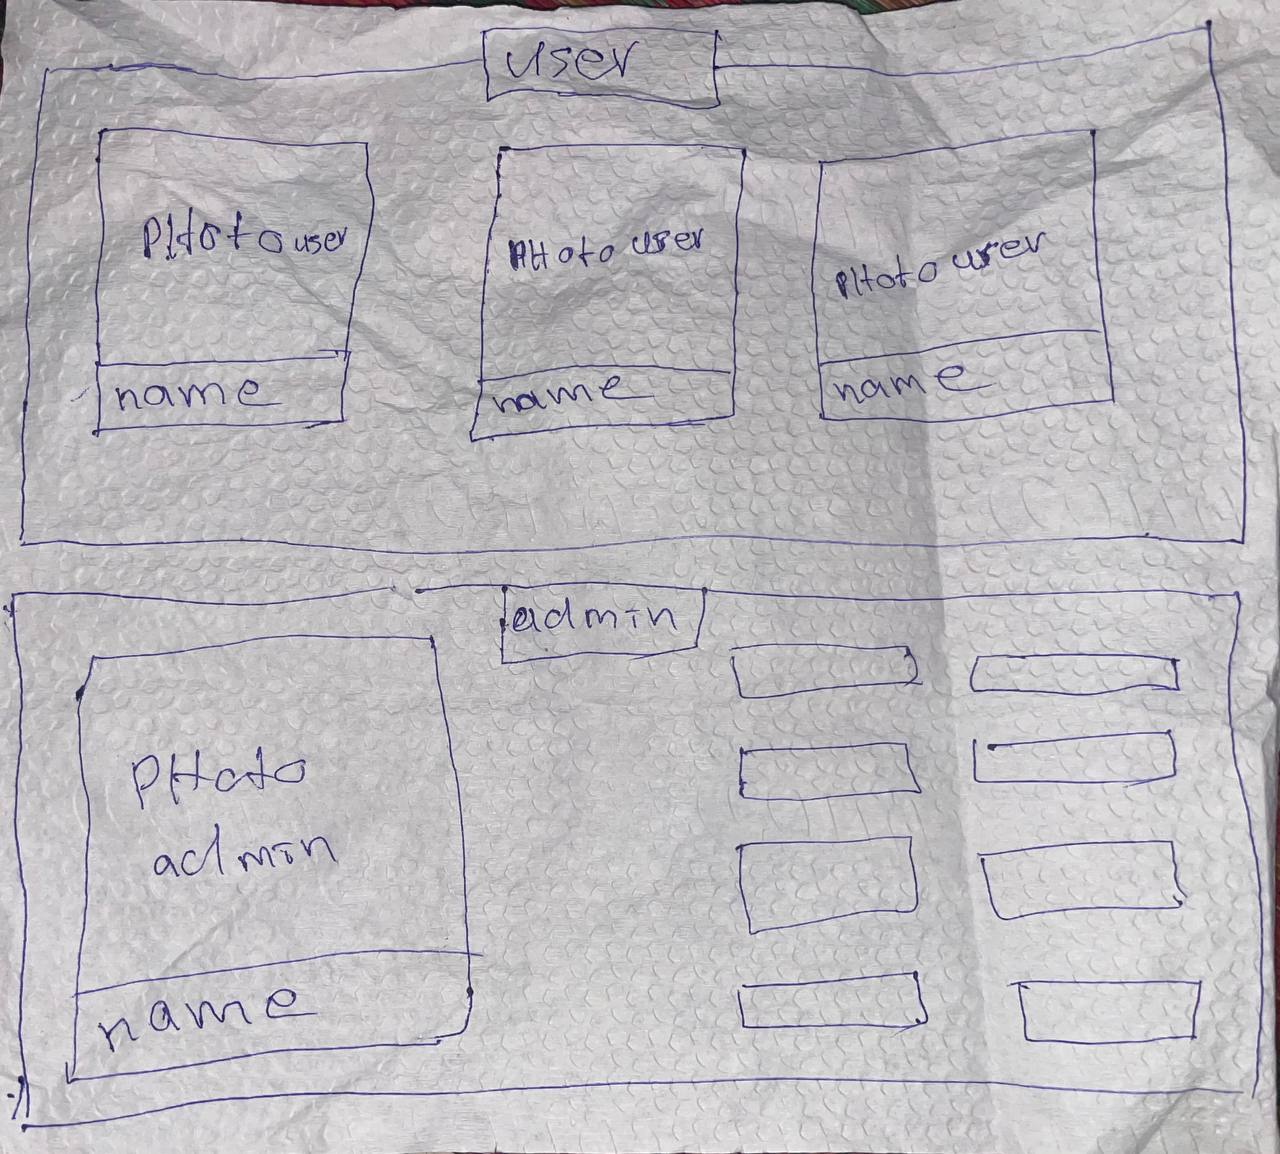 user
PHoto user
name
PHoto user
name
PHoto user
name
admin
PHoto
admin
name